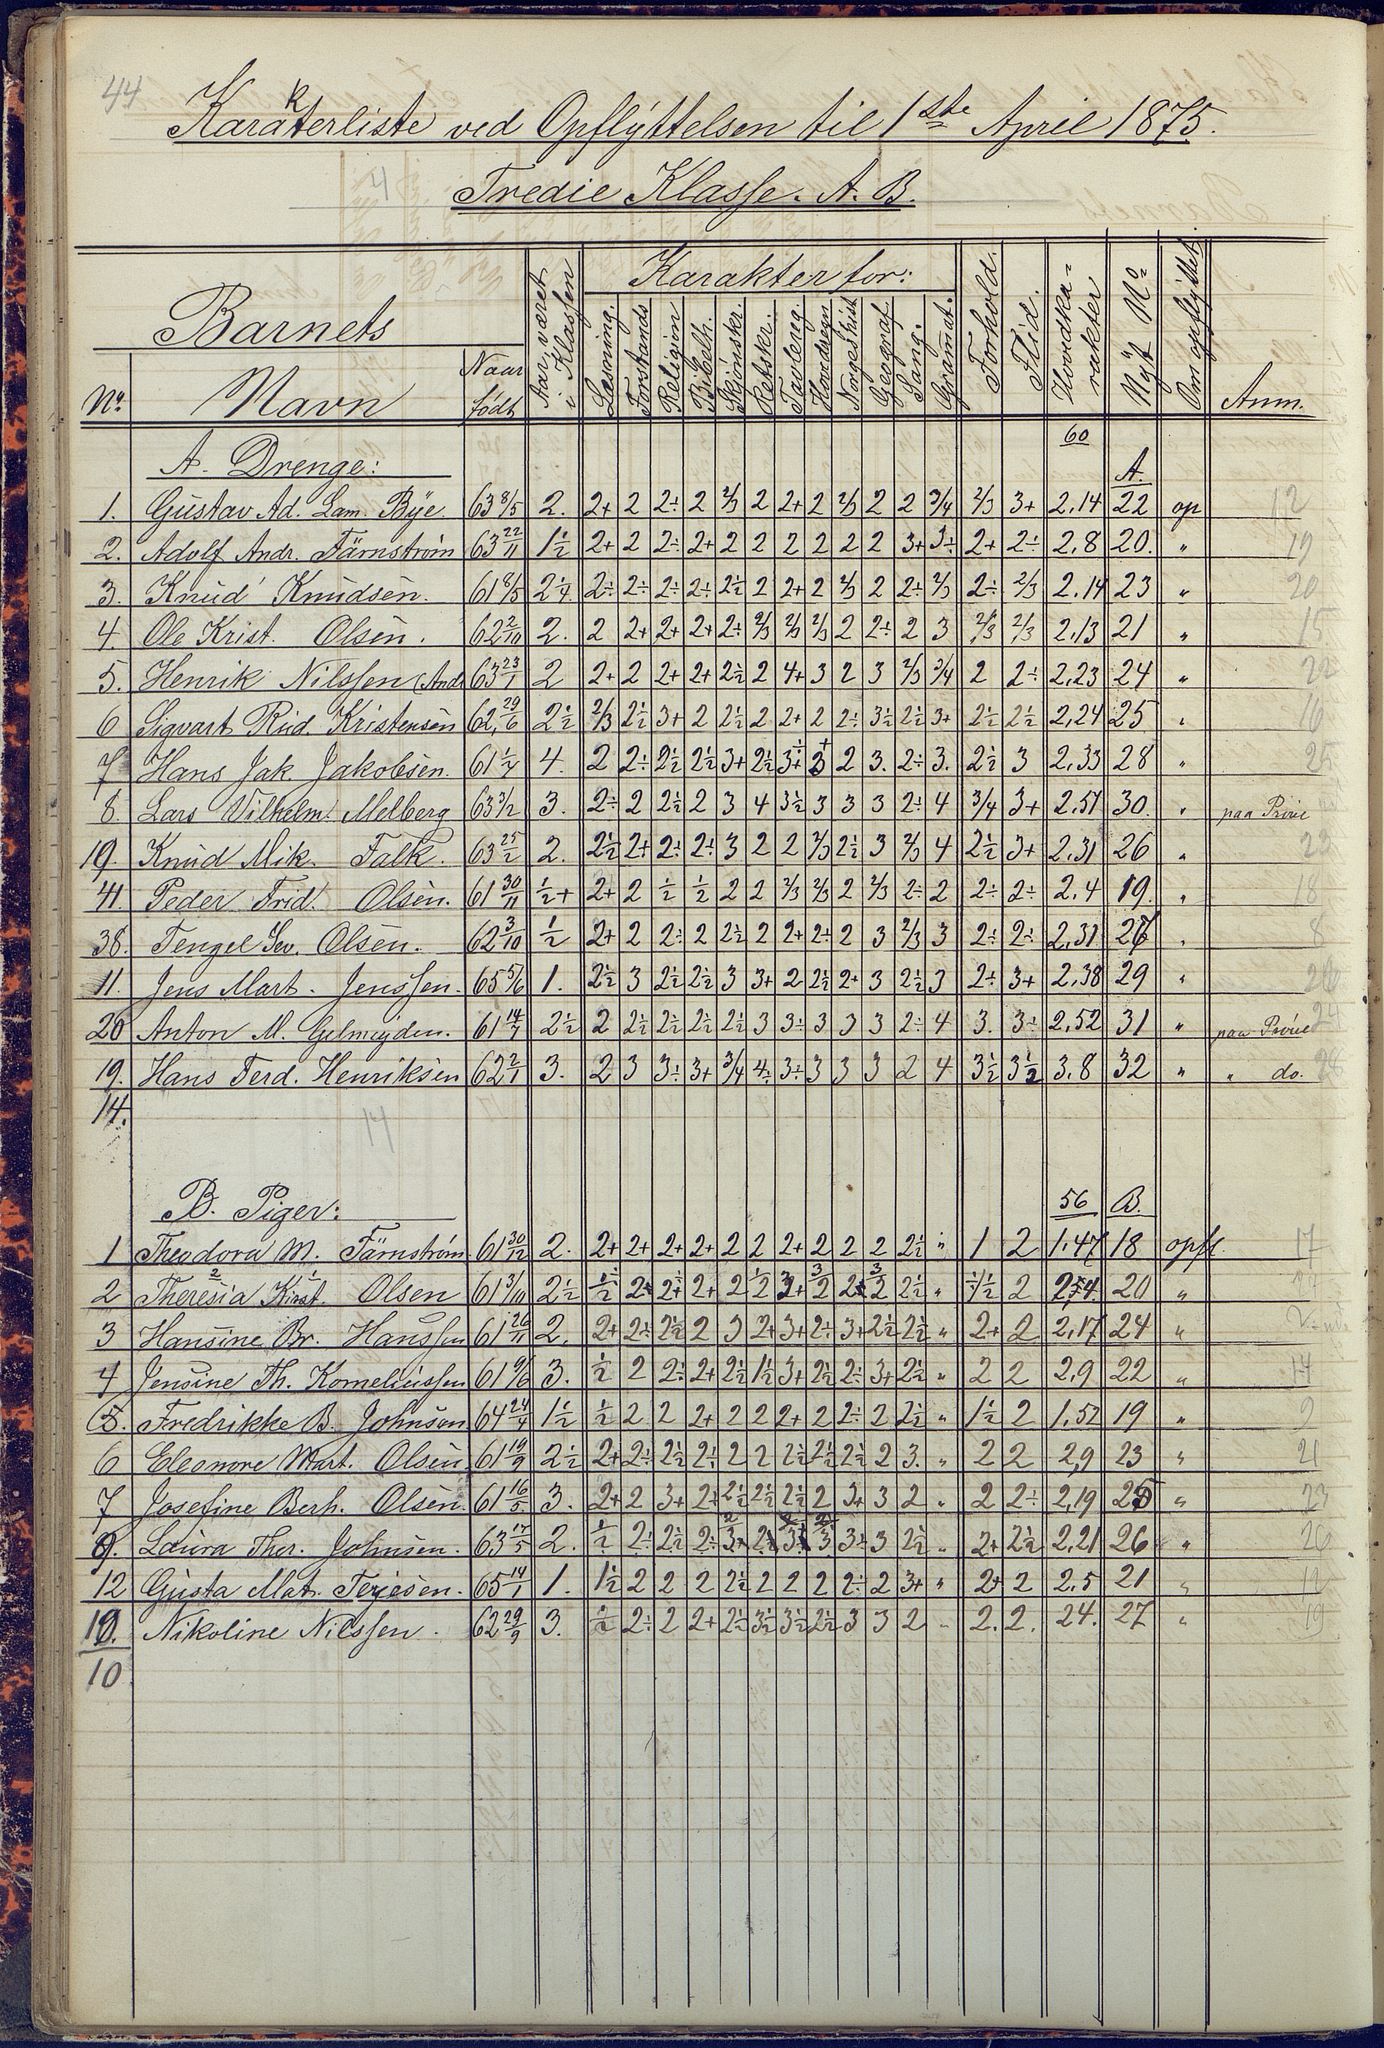 44
Karakterliste ved Opflÿttelsen til 1ste April 1875.
Tredie Klasse. A. B.
4
Barnets
No. Navn Naar født Aar været i Klassen Karakter for: Læsning. Forstands Religion Bibelh. Skjönskr. Retskr. Tavlereg. Hovedregn Norges Hist. Geograf Sang. Gramat. Forhold. Flid. Hovedka-rakter Nÿt No Om opflÿttet Anm.
60
A. Drenge: A.
1. Gustav Ad. Lam. Bÿe. 63 8/5 2. 2+ 2 2÷ 2 2/3 2 2+ 2 2/3 2 2 3/4 2/3 3+ 2,14 22 op 12
2. Adolf Andr. Färnström 63 22/11 1½ 2+ 2 2÷ 2+ 2 2 2 2 2 2 3+ 3÷ 2+ 2÷ 2,8 20. " 19
3. Knud Knudsen. 61 8/5 2¼ 2÷ 2÷ 2÷ 2÷ 2½ 2 2+ 2 2/3 2 2÷ 2/3 2÷ 2/3 2,14 23 " 20
4. Ole Krist. Olsen. 62 2/10 2. 2 2+ 2+ 2+ 2÷ 2/3 2/3 2/3 2 2÷ 2 3 2/3 2/3 2,13 21 " 15
5. Henrik Nilssen (Andr 63 23/1 2 2+ 2 2+ 2+ 2½ 2 4+ 3 2 3 2/3 3/4 2 2÷ 2,23 24 " 22
6 Sigvart Rud. Kristensen 62 29/6 2½ 2/3 2½ 3+ 2 2½ 2 2+ 2 2÷ 3½ 2½ 3+ 2½ 2½ 2,24 25 " 16
7 Hans Jak. Jakobsen. 61 1/7 4. 2 2÷ 2½ 2½ 3+ 2½ 3+ 3+ 2 3. 2÷ 3. 2½ 3 2,33 28 " 25
8. Lars Vilhelm. Melberg 63 3/2 3. 2÷ 2 2½ 2 3 4 3½ 3 3 3 2÷ 4 3/4 3+ 2,57 30. " paa Prøve
19. Knud Mik. Falk. 63 25/2 2. 2½ 2+ 2÷ 2÷ 3 2 2 2/3 2½ 3 2/3 4 2½ 3+ 2,31 26 " 23
41. Peder Frid. Olsen. 61 30/11 ½+ 2+ 2 ½ ½ 2 2 2/3 2/3 2 2/3 2÷ 2 2÷ 2÷ 2,4 19. " 18
38. Tengel Sev. Olsen. 62 3/10 ½ 2+ 2 2÷ 2 2½ 2 2+ 2÷ 2 3 2/3 3 2÷ 2÷ 2,31 27 " 8
11. Jens Mart. Jenssen. 65 5/6 1. 2½ 3 2½ 2½ 3 3+ 2 2½ 2+ 3 2½ 3 2÷ 3+ 2,38 29 " 26
20 Anton M. Gelmeyden. 61 14/7 2½ 2 2½ 2½ 2½ 2½ 3 3÷ 3 3 3 2÷ 4 3. 3÷ 2,52 31 " paa Prøve 24
19. Hans Ferd. Henriksen 62 2/1 3. 2 3 3÷ 3+ 3/4 4÷ 3÷ 3 3 3 2 4 3½ 3½ 3.8 32 " " do. 28
14.
14
56 B.
B. Piger:
1 Theodora M. Färnström 61 30/12 2. 2+ 2+ 2+ 2+ 2 2 2+ 2 2 2 2½ " 1 2 1.47 18 opfl. 17
2 Theresia Kirst. Olsen 61 3/10 2½ 2+ 2+ 2+ 2 2½ " 2 20 "
3 Hansine Br. Hanssen 61 26/11 2. 2+ 2÷ 2½ 2 3 2+ 3+ 2÷ 3+ 2½ 2½ " 2+ 2 2,17 24 "
4 Jensine Th. Korneliussen 61 9/6 3. ½ 2 2÷ 2+ 2½ 1½ 3+ 2½ 2÷ 3+ 2½ " 2 2 2,9 22 " 14
5. Fredrikke B. Johnsen 64 24/4 1½ ½ 2 2 2+ 2 2 2+ 2 2÷ 2 2½ " 1½ 2 1.52 19 " 9
6 Eleonore Mart. Olsen 61 19/9 2½ 2+ 2÷ 2½ 2÷ 2 2 2½ 2½ 2½ 2 3. " 2 2 2,9 23 " 21
7 Josefine Berh. Olsen. 61 16/5 3. 2+ 2 3+ 2+ 2½ 2½ 2½ 2 3+ 3 2 " 2 2÷ 2,19 25 " 23
9. Laura Ther. Johnsen. 63 17/5 2. ½ 2÷ 2½ 2÷ 3+ 3 3÷ 3 2½ " 2+ 2½ 2,21 26 " 20
12 Gusta Mat. Terjesen. 65 14/1 1. 1½ 2 2 2 2½ 2 2 2 2÷ 2 3+ " 2+ 2 2.5 21 " 12
10. Nikoline Nilssen. 62 29/9 3. ½ 2÷ 2 2+ 2½ 3½ 3½ 2½ 3 3 2 " 2. 2. 24. 27 " 19
10